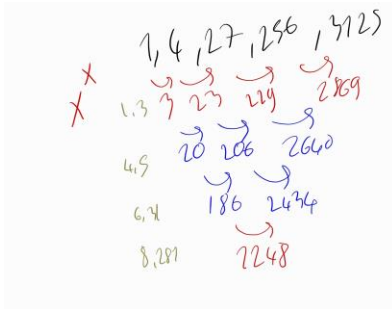 1, 4, 27, 256, 3125
x
x 1.3 3 23 229 2869
20 206 2640
4,5
186 2434
6,31
8,281 2248